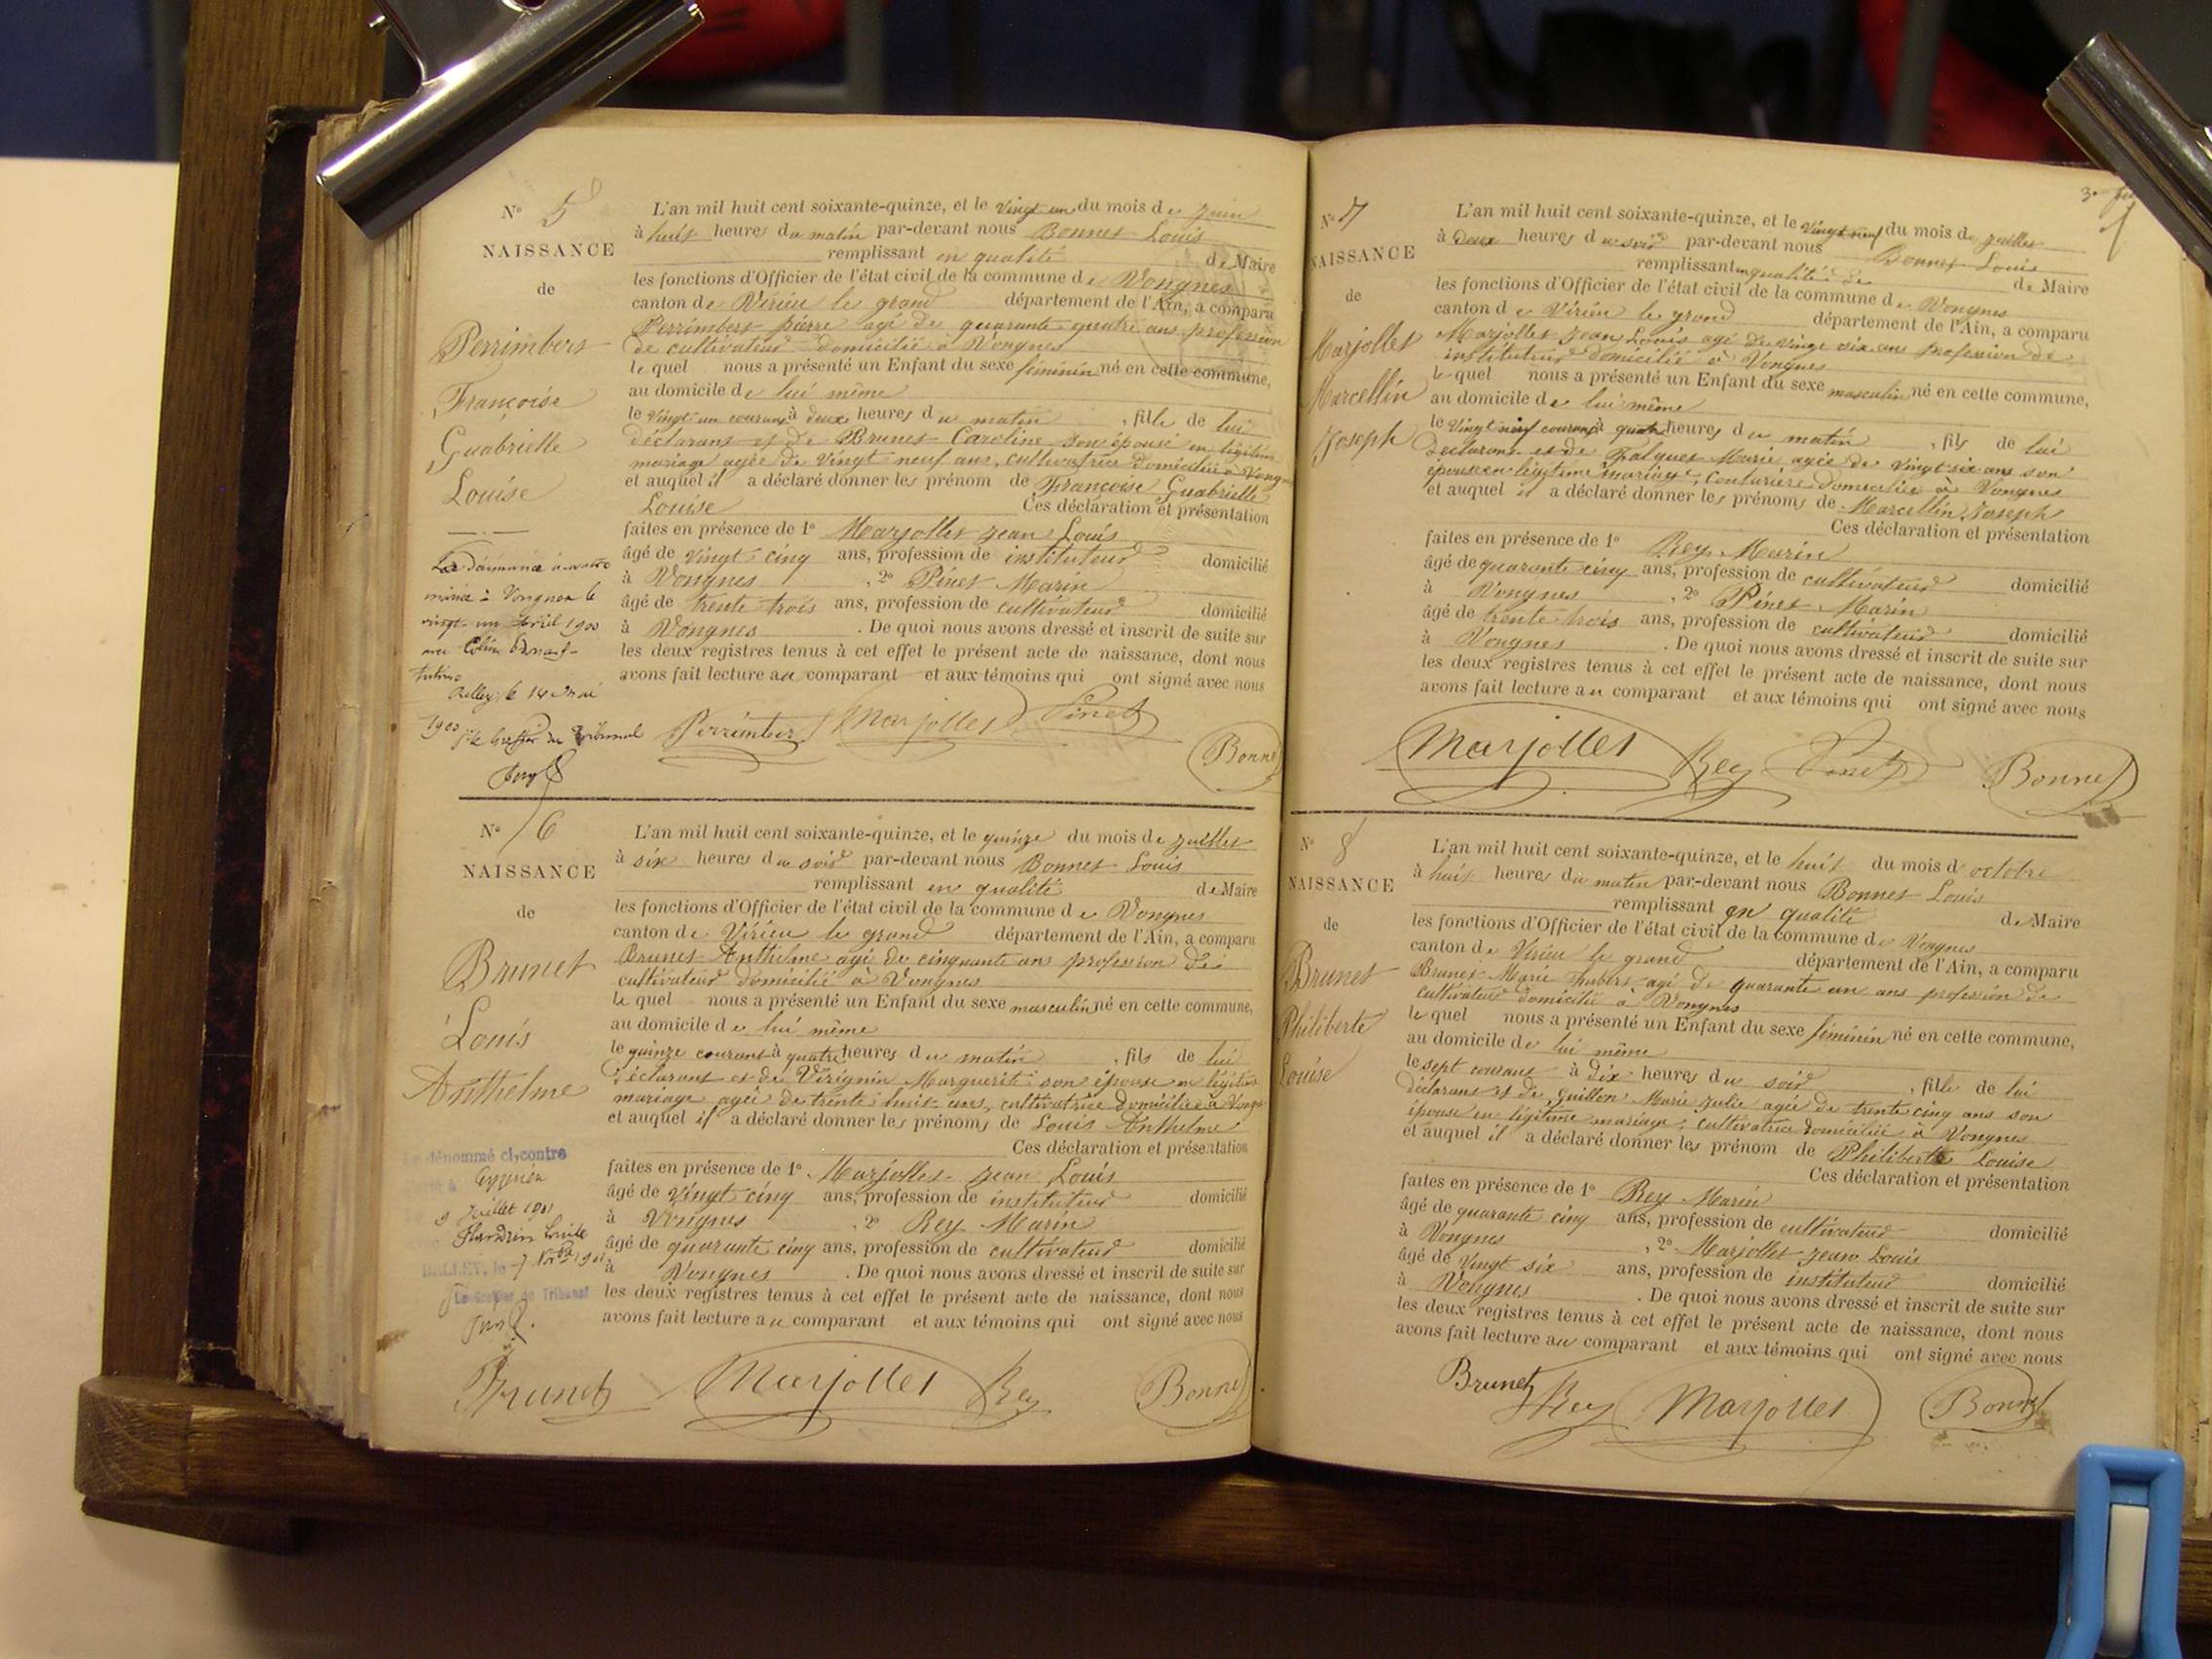 N° 5
NAISSANCE
de
Perrimbert
Françoise
Guabrielle
Louise
L'an mil huit cent soixante-quinze, et le vingt un du mois de juin
à huit heures du matin par-devant nous Bonnet Louis
remplissant en qualité de Maire
les fonctions d'Officier de l'état civil de la commune de Vongnes
canton de Virieu le grand département de l'Ain, a comparu
Perrimbert pierre agé de quarante quatre ans profession
de cultivateur domicilié à Vongnes
lequel nous a présenté un Enfant du sexe féminin né en cette commune,
au domicile de lui même
le vingt un courant à deux heures du matin, fille de lui
déclarant et de Brunet Caroline son épouse en légitime
mariage agée de vingt neuf ans, cultivatrice domiciliée à Vongnes
et auquel il a déclaré donner les prénom de Françoise Guabrielle
Louise Ces déclaration et présentation
faites en présence de 1° Marjollet jean Louis
âgé de vingt cinq ans, profession de instituteur domicilié
à Vongnes, 2° Pinet Marin
âgé de trente trois ans, profession de cultivateur domicilié
à Vongnes. De quoi nous avons dressé et inscrit de suite sur
les deux registres tenus à cet effet le présent acte de naissance, dont nous
avons fait lecture au comparant et aux témoins qui ont signé avec nous
à Vongnes le
vingt-un Avril 1900
1900 Le Greffier du Tribunal
Perrimbert Marjollet Pinet
Bonnet
N° 6
NAISSANCE
de
Brunet
Louis
Anthelme
L'an mil huit cent soixante-quinze, et le quinze du mois de juillet
à six heures du soir par-devant nous Bonnet Louis
remplissant en qualité de Maire
les fonctions d'Officier de l'état civil de la commune de Vongnes
canton de Virieu le grand département de l'Ain, a comparu
Brunet Anthelme agé de cinquante ans profession de
cultivateur domicilié à Vongnes
lequel nous a présenté un Enfant du sexe masculin né en cette commune,
au domicile de lui même
le quinze courant à quatre heures du matin, fils de lui
déclarant et de Virignin Marguerite son épouse en légitime
mariage agée de trente huit ans, cultivatrice domiciliée à Vongnes
et auquel il a déclaré donner les prénoms de Louis Anthelme
Ces déclaration et présentation
faites en présence de 1° Marjollet jean Louis
âgé de vingt cinq ans, profession de instituteur domicilié
à Vongnes, 2° Rey Marin
âgé de quarante cinq ans, profession de cultivateur domicilié
à Vongnes. De quoi nous avons dressé et inscrit de suite sur
les deux registres tenus à cet effet le présent acte de naissance, dont nous
avons fait lecture au comparant et aux témoins qui ont signé avec nous
Le dénommé ci-contre
Ceyzérieu
9 Juillet 1901
Flandrin Louise
BELLEY, le 7 1901
Le Greffier du Tribunal
Brunet Marjollet Rey Bonnet
N° 7
NAISSANCE
de
Marjollet
Marcellin
Joseph
L'an mil huit cent soixante-quinze, et le vingt neuf du mois de juillet
à deux heures du soir par-devant nous Bonnet Louis
remplissant en qualité de de Maire
les fonctions d'Officier de l'état civil de la commune de Vongnes
canton de Virieu le grand département de l'Ain, a comparu
Marjollet jean Louis agé de vingt six ans profession de
instituteur domicilié à Vongnes
lequel nous a présenté un Enfant du sexe masculin né en cette commune,
au domicile de lui même
le vingt neuf courant à quatre heures du matin, fils de lui
déclarant et de Falques Marie agée de vingt six ans son
épouse en légitime mariage, couturière domiciliée à Vongnes
et auquel il a déclaré donner les prénoms de Marcellin Joseph
Ces déclaration et présentation
faites en présence de 1° Rey Marin
âgé de quarante cinq ans, profession de cultivateur domicilié
à Vongnes, 2° Pinet Marin
âgé de trente trois ans, profession de cultivateur domicilié
à Vongnes. De quoi nous avons dressé et inscrit de suite sur
les deux registres tenus à cet effet le présent acte de naissance, dont nous
avons fait lecture au comparant et aux témoins qui ont signé avec nous
Marjollet Rey Pinet Bonnet
N° 8
NAISSANCE
de
Brunet
Philiberte
Louise
L'an mil huit cent soixante-quinze, et le huit du mois d'octobre
à huit heures du matin par-devant nous Bonnet Louis
remplissant en qualité de Maire
les fonctions d'Officier de l'état civil de la commune de Vongnes
canton de Virieu le grand département de l'Ain, a comparu
Brunet Marie hubert agé de quarante un ans profession de
cultivateur domicilié à Vongnes
lequel nous a présenté un Enfant du sexe féminin né en cette commune,
au domicile de lui même
le sept courant à dix heures du soir, fille de lui
déclarant et de Guillon Marie Julie agée de trente cinq ans son
épouse en légitime mariage, cultivatrice domiciliée à Vongnes
et auquel il a déclaré donner les prénom de Philiberte Louise
Ces déclaration et présentation
faites en présence de 1° Rey Marin
âgé de quarante cinq ans, profession de cultivateur domicilié
à Vongnes, 2° Marjollet jean Louis
âgé de vingt six ans, profession de instituteur domicilié
à Vongnes. De quoi nous avons dressé et inscrit de suite sur
les deux registres tenus à cet effet le présent acte de naissance, dont nous
avons fait lecture au comparant et aux témoins qui ont signé avec nous
Brunet Rey Marjollet Bonnet